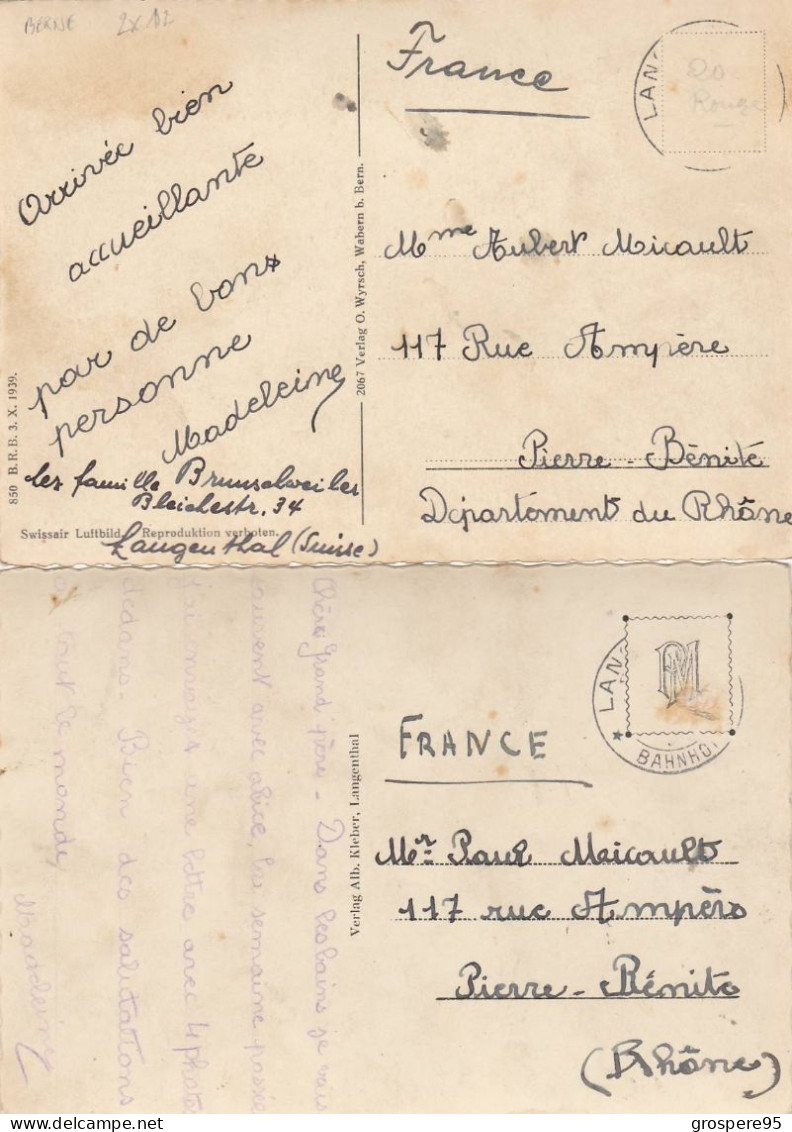 BERNE 2x12
Arrivée bien
accueillante
par de bons
personne
Madeleine
les famille Brunschweiler
Bleichestr. 34
Langenthal (Suisse)
850 B.R.B. 3. X. 1939.
Swissair Luftbild. Reproduktion verboten.
2067 Verlag O. Wyrsch, Wabern b. Bern.
France
LAN-
20
Rouge
Mme Aubert Micault
117 Rue Ampère
Pierre-Bénité
Départément du Rhône
Chère Grand'père - Dans les bains je vais
souvent avec alice, la semaine passée
j'ai envoyer une lettre avec 4 photos
dedans. Bien des salutations
a tout le monde,
Madeleine
Verlag Alb. Kleber, Langenthal
FRANCE
LAN-
BAHNHO
Mr Paul Micault
117 rue Ampère
Pierre-Bénite
(Rhône)
grospere95